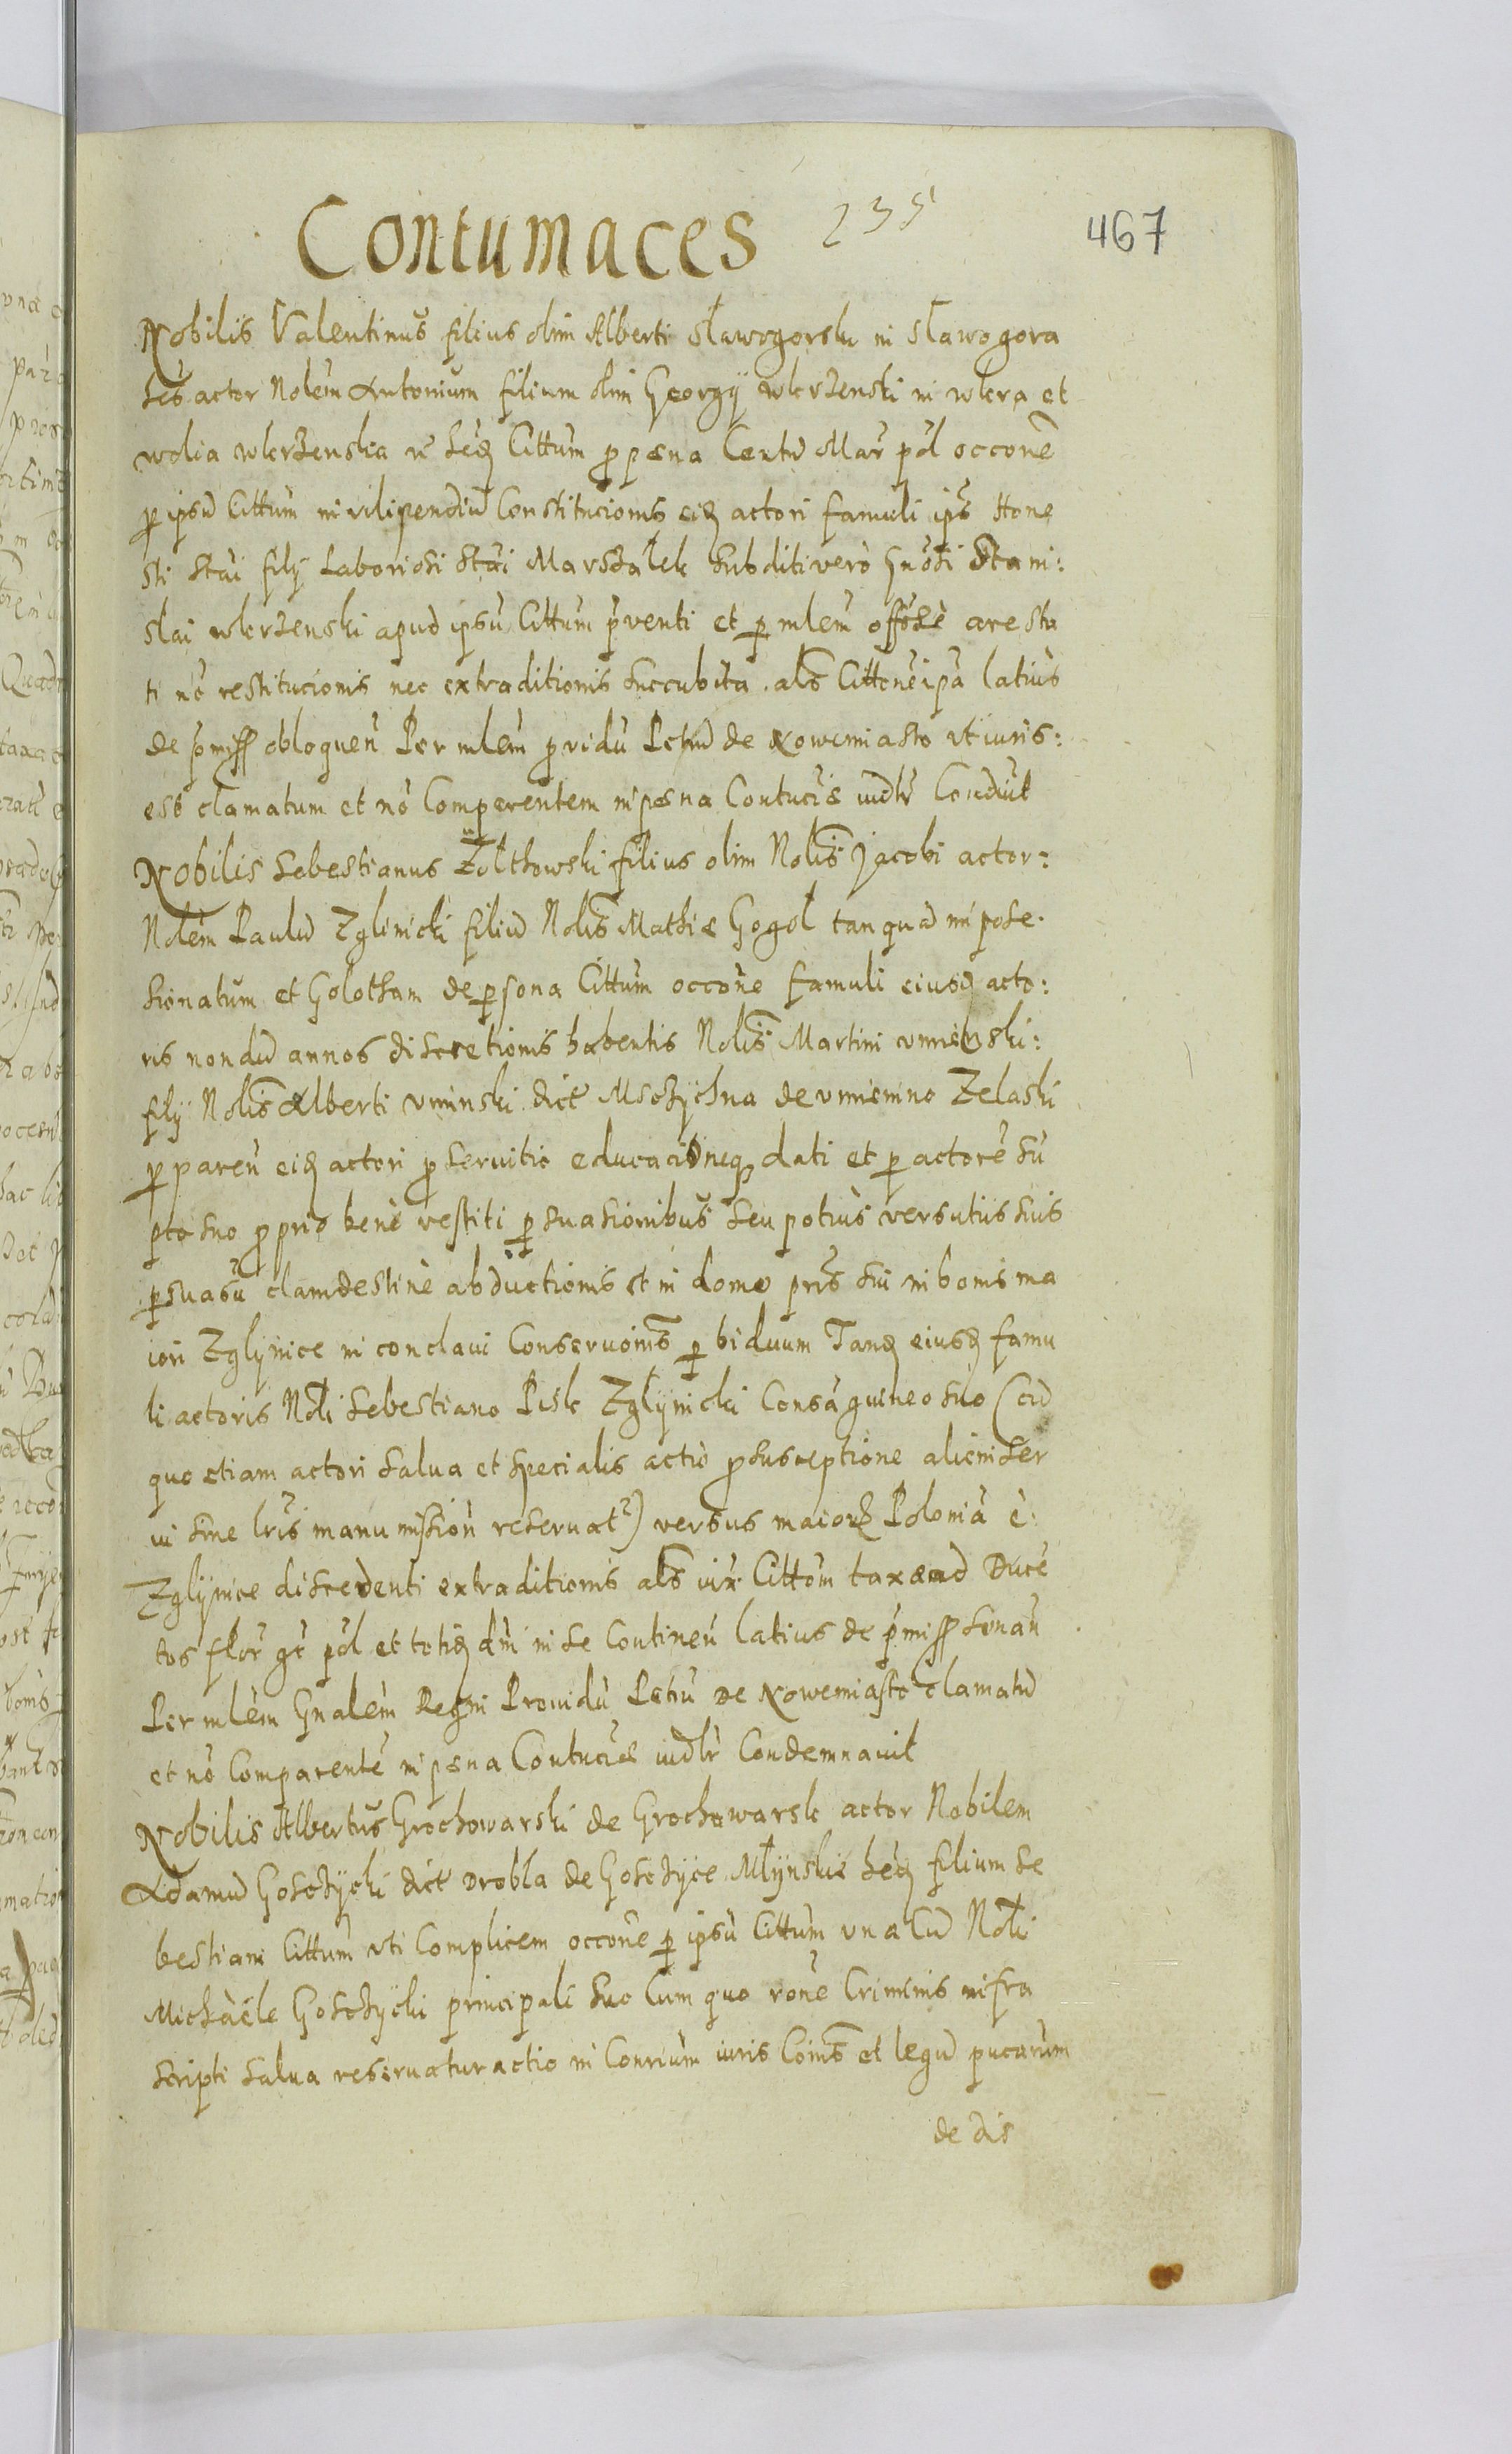 Contumaces 235
467
Nobilis Valentinus filius olim Alberti Sławogorski in Sławogora
actor Nolem Antonium filium olim Georgij wkrzenski in wkra et
wolia wkrzenska Cittum pro pæna Centu Mar pol occone
pro ipsu Cittum in vilipendiu Constitucionis eid actori famuli ips Hone
sti Stai filij Laboriosi Stai Marszałek subditi vero Gnosi Stani:
slai wkrzenski apud ipsu Cittum pventi et p mlem aresta
ti no restitucionis nec extraditionis succubita. als Cittone ipa latius
de pmiss obloquen Per mlem providu Petru de Nowemiasto ut iuris:
est clamatum et no Comparentem in pæna Contucie iudlr Condut
Nobilis Sebestianus Żołthowski filius olim Nolis Jacobi actor:
Nolem Paulu Zglinicki filiu Nolis Mathie Gogol tanquad inpose.
sionatum et Golotham de psona Cittum occone famuli eiusd acto:
ris nondu annos discretionis habentis Nolis Martini vnienski:
filij Nolis Alberti vninski dict Msczychna de vniemino Zelaski
p paren eid actori pro seruitio educacioneq dati et p actore su
pto suo proprio bene vestiti psuasionibus seu potius versutiis suis
psuasu clamdestine abductionis et in domo pris sui in bonis ma
iori Zglynice in conclaui Conseruoinis p biduum Tand eiusd famu
li actoris Noli Sebestiano Pisk Zglynicki Consaguineo suo (cu
quo etiam actori salua et specialis actio pro susceptione alieni ser
ui sine lris manumission reseruat) versus maiore Polonia e:
Zglynice discedenti extraditionis als iux Cittom taxand Duce
tos flor gc pol et totid dni in se Continen latius de pmiss sonan
Per mlem Gnalem Regni Prouidu Petru de Nowemiasto clamatu
et no Comparente in pæna Contucie iudlr Condemnauit
Nobilis Albertus Grochowarski de Grochowarsk actor Nobilem
Adamu Gosczycki dict Drobla de Gosczyce Młynskie hed filium Se
bestiani Cittum uti Complicem occone p ipsu Cittum vna Cu Noli
Michaele Gosczycki principali suo Cum quo rone Criminis infra
scripti salua reseruatur actio in Conrium iuris Coinis et legu pucarum
de dis